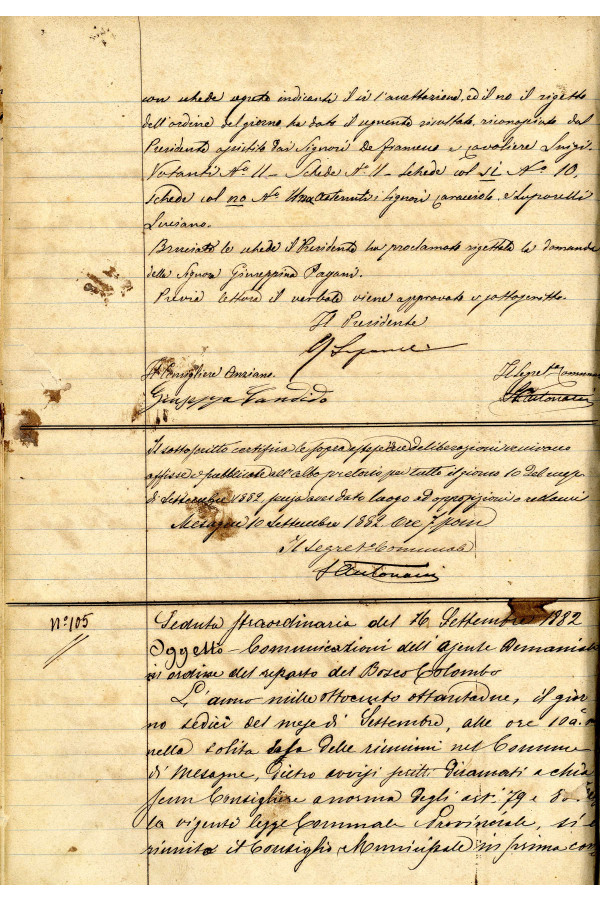 con schede segrete indicante il sì l'accettazione, ed il no il rigetto
dell'ordine del giorno, ha dato il seguente risultato, riconosciuto dal
Presidente assistito dai Signori De Francesco e Cavaliere Luigi.
Votanti N.º 11 — Schede N.º 11 — schede col sì N.º 10,
schede col no N.º Una astenuti i Signori Caracciolo, e Luparelli
Luciano.
Bruciate le schede il Presidente ha proclamato rigettata la domanda
della Signora Giuseppina Pagani.
Previa lettura il verbale viene approvato e sottoscritto.
Il Presidente
Il Consigliere Anziano.
Il Segret.º Comunale
Giuseppe Candido
S. Antonaci
Il sottoscritto certifica le sopra estese deliberazioni venivano
affisse e pubblicate all'albo pretorio per tutto il giorno 10 del mese
di Settembre 1882, senza aver dato luogo ad opposizioni o reclami
Mesagne 10 Settembre 1882. Ore 7 pom
Il Segret.º Comunale
S. Antonaci
N.º 105
Seduta straordinaria del 16 Settembre 1882
Oggetto — Comunicazioni dell'Agente Demaniale
in ordine del reparto del Bosco Colombo
L'anno mille ottocento ottantadue, il gior
no sedici del mese di Settembre, alle ore 10 a.
nella solita sala delle riunioni nel Comune
di Mesagne, dietro avvisi scritti diramati a cia
scun Consigliere a norma degli art. 79 e 80
la vigente legge Comunale Provinciale, si è
riunito il Consiglio Municipale in prima con